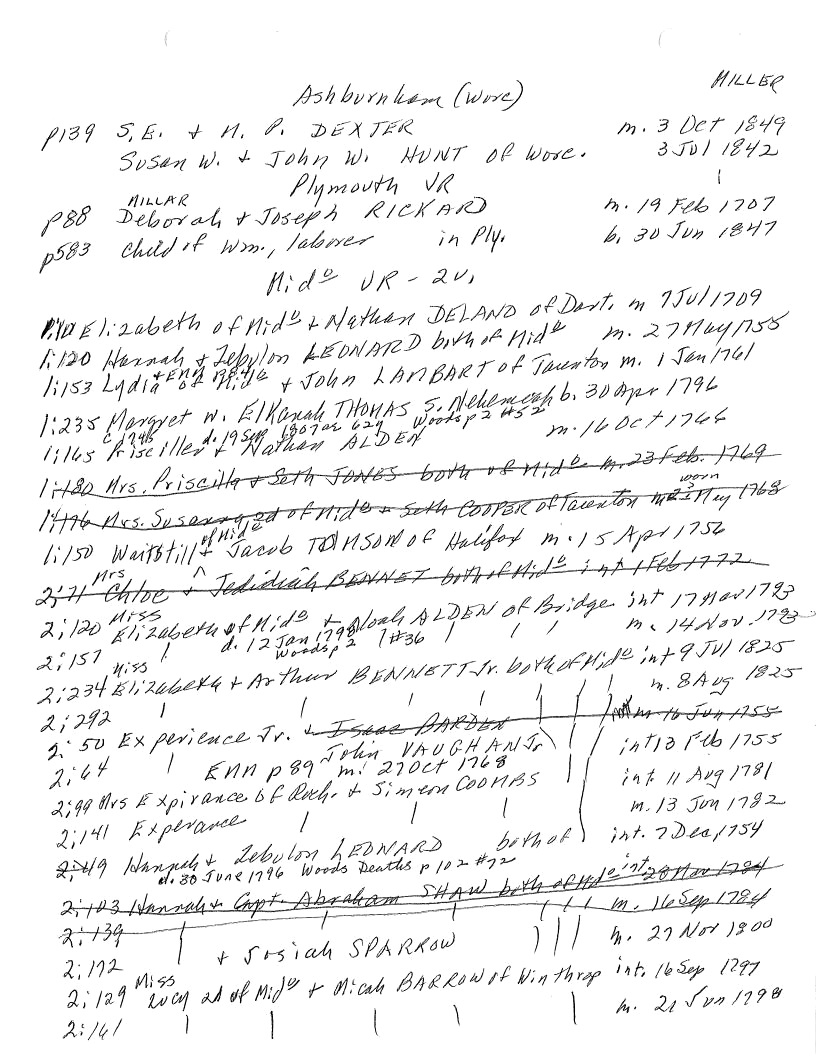 MILLER
Ashburnham (Worc)
p139 S.E. + M. P. DEXTER m. 3 Oct 1849
Susan W. + John W. HUNT of Worc. 3 Jul 1842
Plymouth VR
MILLAR
p88 Deborah + Joseph RICKARD m. 19 Feb 1707
p583 child of Wm., laborer in Ply. b. 30 Jun 1847
Mid° VR - 2v.
Elizabeth of Mid° + Nathan DELANO of Dart. m 7 Jul 1709
1:120 Hannah + Zebulon LEONARD both of Mid° m. 27 May 1755
1:153 Lydia of Mid° + John LAMBART of Taunton m. 1 Jan 1761
1:235 Margret w. Elkanah THOMAS S. Nehemeah b. 30 Apr 1796
c 1745 d. 19 Sep 1807 ae 62y Woods p 2 #52
1:165 Priscilla + Nathan ALDEN m. 16 Oct 1766
1:180 Mrs. Priscilla + Seth JONES both of Mid° m. 23 Feb. 1769
worn
Mrs. Susanna 2d of Mid° + Seth COOPER of Taunton May 1768
of Mid°
1:150 Waitstill + Jacob TOMSON of Halifax m. 15 Apr 1756
Mrs
2:71 Chloe + Jedidiah BENNET both of Mid° int 1 Feb 1772
Miss
2:120 Elizabeth of Mid° + Noah ALDEN of Bridge int 17 Mar 1793
d. 12 Jan 1798
2:157 Woods p 2 #36 m. 14 Nov. 1793
Miss
2:234 Elizabeth + Arthur BENNETT Jr. both of Mid° int 9 Jul 1825
2:292 m. 8 Aug 1825
2:50 Experience Jr. + Isaac BARDEN m. 16 Jun 1755
John VAUGHAN Jr int 13 Feb 1755
2:64 ENM p 89 m. 27 Oct 1768
2:99 Mrs Expirance of Roch. + Simeon COOMBS int. 11 Aug 1781
2:141 Experance m. 13 Jun 1782
2:49 Hannah + Zebulon LEONARD both of int. 7 Dec, 1754
d. 30 June 1796 Woods Deaths p 102 #72
2:103 Hannah + Capt. Abraham SHAW both of Mid° int 28 Mar 1784
2:139 m. 16 Sep 1784
2:172 + Josiah SPARROW m. 27 Nov 1800
Miss
2:129 Lucy 2d of Mid° + Micah BARROW of Winthrop int. 16 Sep 1797
2:161 m. 21 Jun 1798